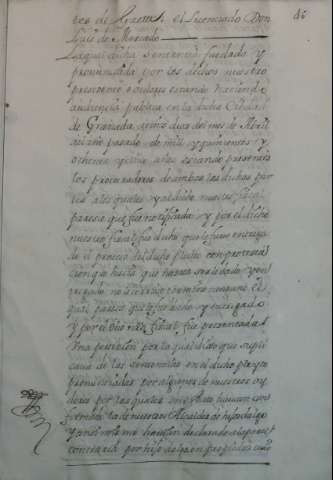 46
tes de Granada el licenciado Don
Luis de Mercado
La qual dicha sentencia fue dada y
pronunciada por los dichos nuestro
presidente e oidores estando haciendo
audiencia publica en la dicha Ciudad
de Granada a cinco dias del mes de Abril
del año pasado de mill y quinientos y
ochenta y siete años estando presentes
los procuradores de ambas las dichas par
tes a los quales y al dicho nuestro fiscal
parece que fue notificada y por el dicho
nuestro fiscal fue dicho que le fuese entrega
do el proceso del dicho pleito con protesta
cion que hasta que
no le corriese termino ninguno el
qual parece que le fue dado y entregado
y por el dicho nuestro fiscal fue presentada
Una peticion por la qual dijo que supli
caba de las sentencias en el dicho pleyto
pronunciadas por algunos de nuestros oy
dores por las quales
nuestros Alcaldes de hijosdalgo
declarado a la parte
contraria por hijodalgo en propiedad